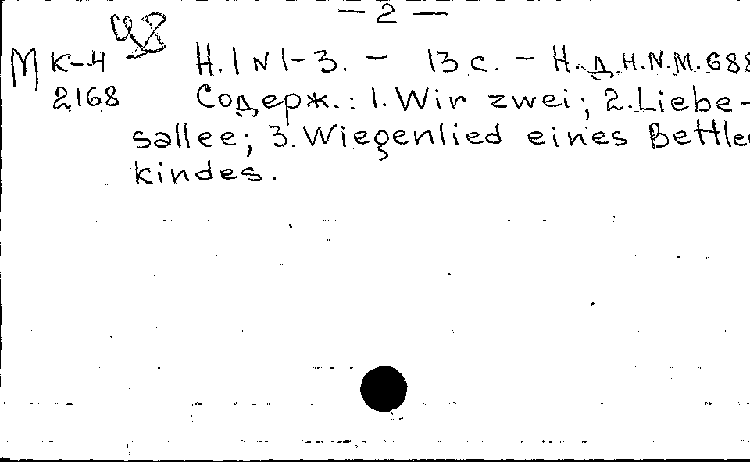 — 2 —
М К-4 Н. 1 N 1-3. — 13 с. — Н. д. Н. N. М. 688
2168 Содерж.: 1. Wir zwei; 2. Liebe-
sallee; 3. Wiegenlied eines Bettle
kindes.